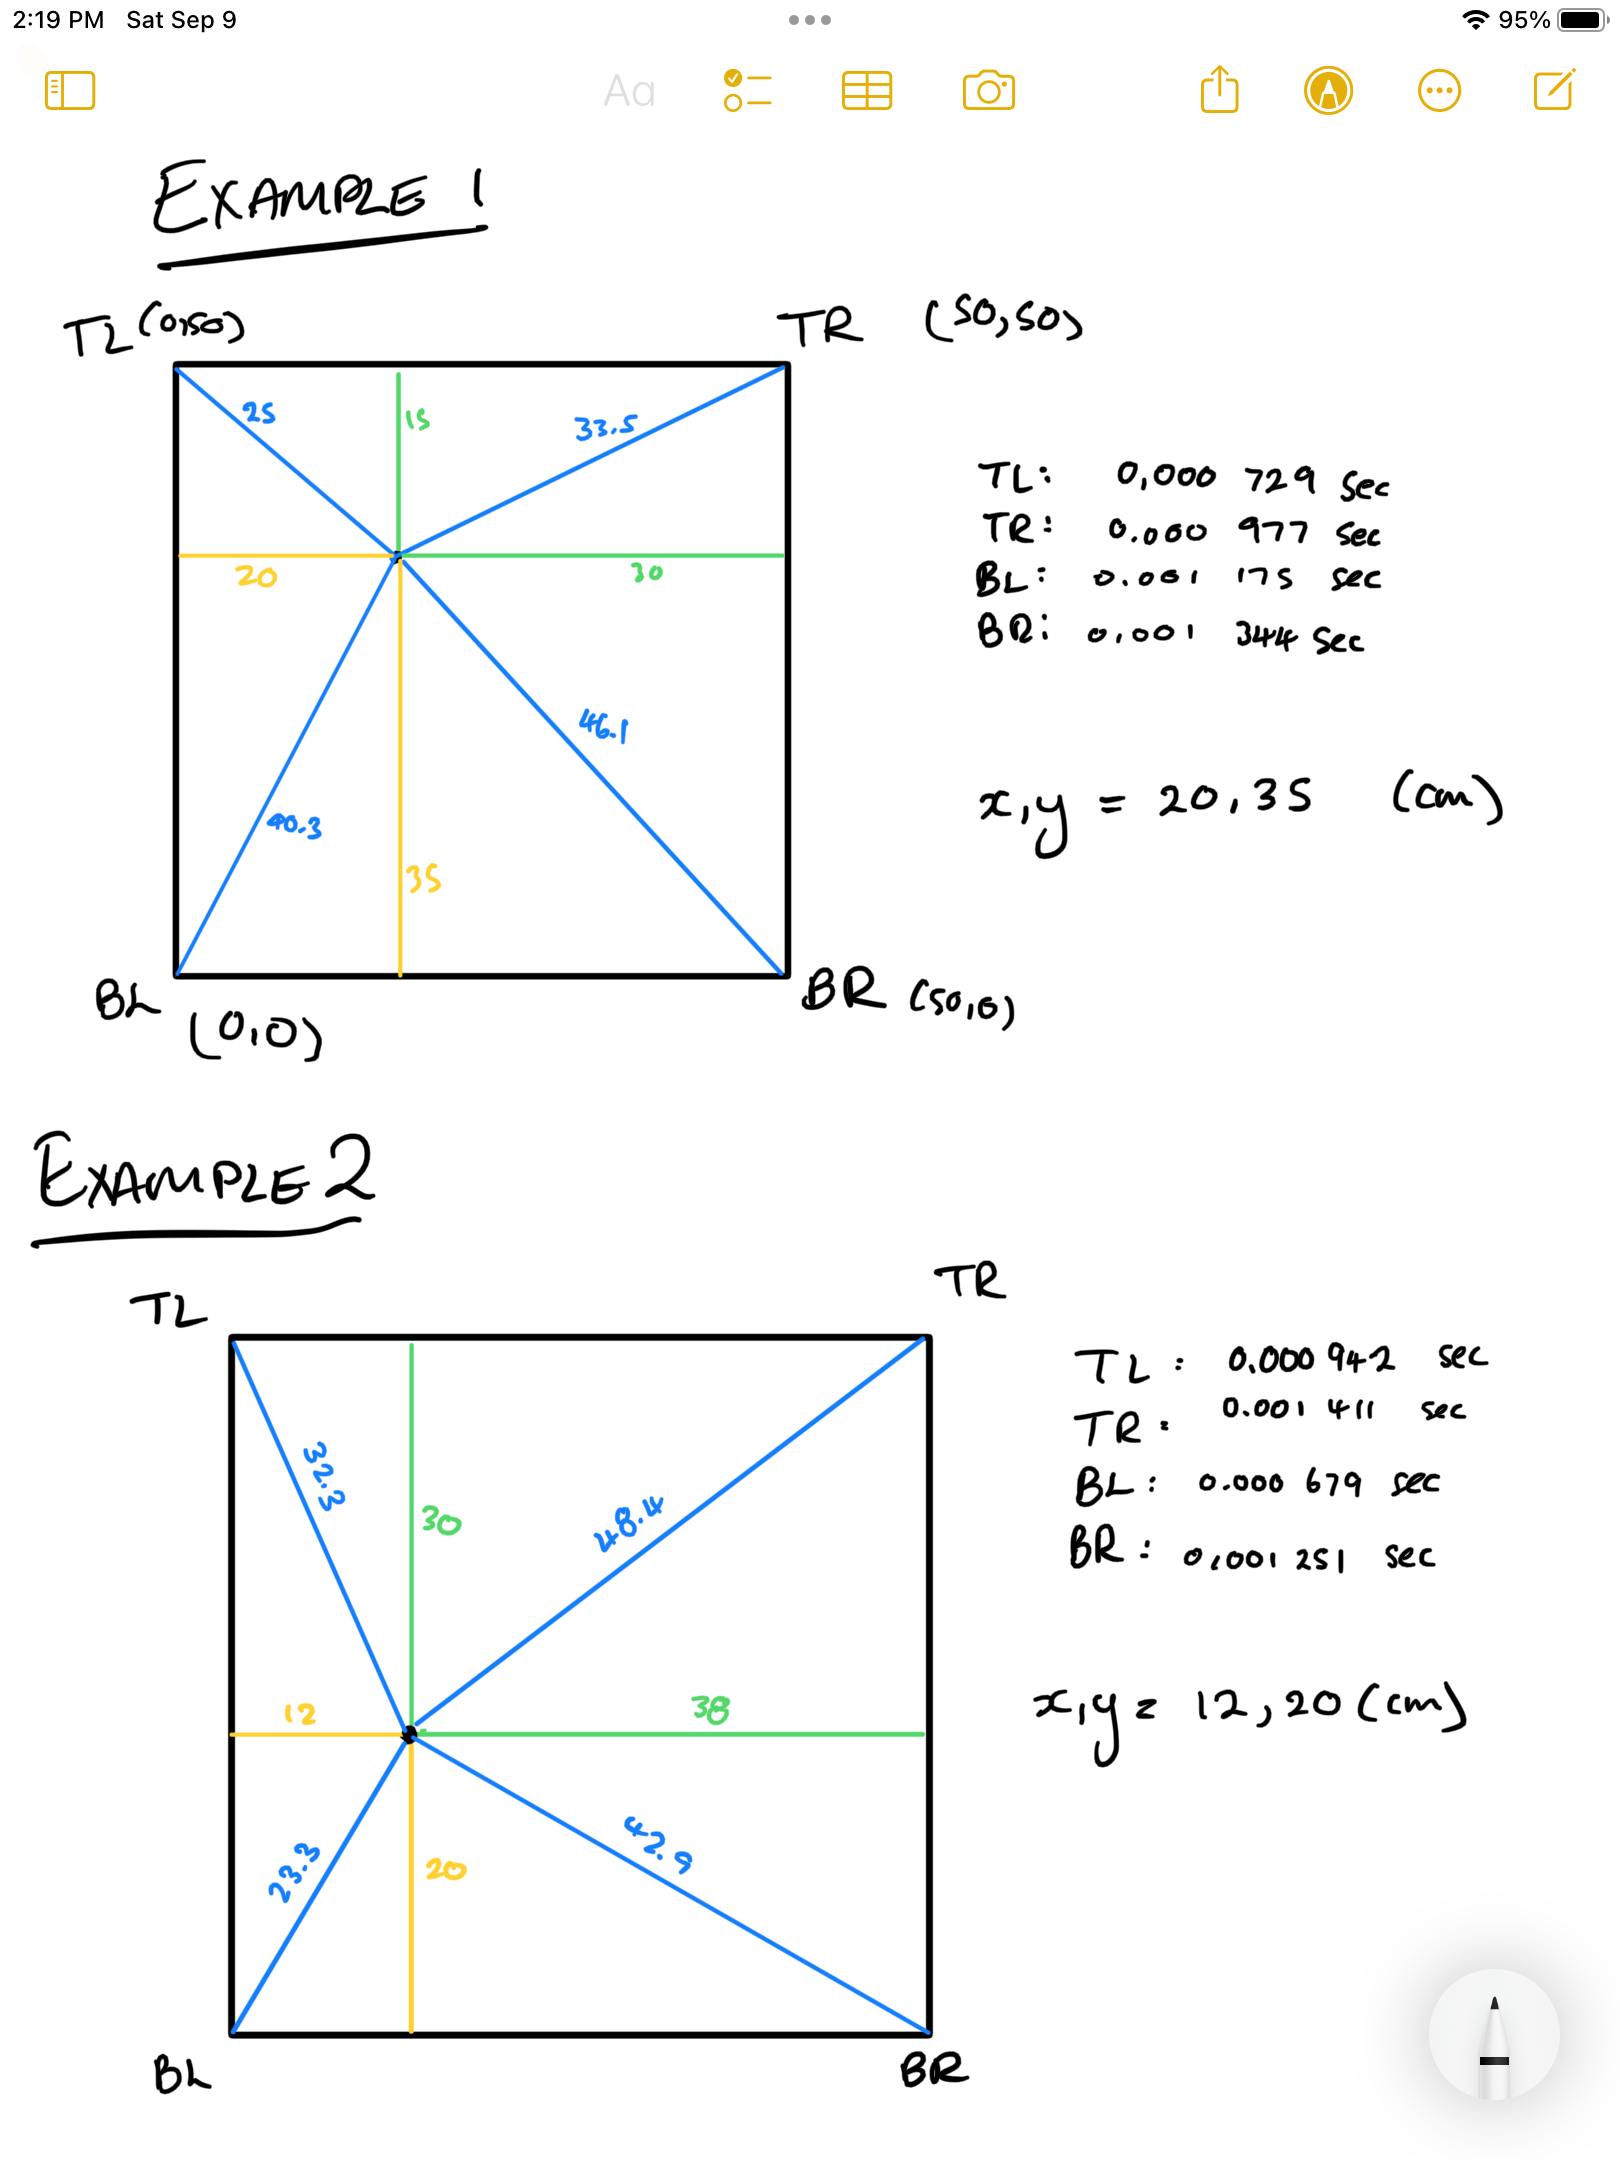 2:19 PM Sat Sep 9
95%
Aa
EXAMPLE 1
TL (0,50)
TR (50,50)
25
15
33.5
20
30
46.1
40.3
35
BL (0,0)
BR (50,0)
TL: 0,000 729 sec
TR: 0.000 977 sec
BL: 0.001 175 sec
BR: 0.001 344 sec
x,y = 20,35 (cm)
EXAMPLE 2
TL
TR
32.3
30
48.4
12
38
23.3
20
42.9
BL
BR
TL: 0.000 942 sec
TR: 0.001 411 sec
BL: 0.000 679 sec
BR: 0.001 251 sec
x,y = 12,20 (cm)